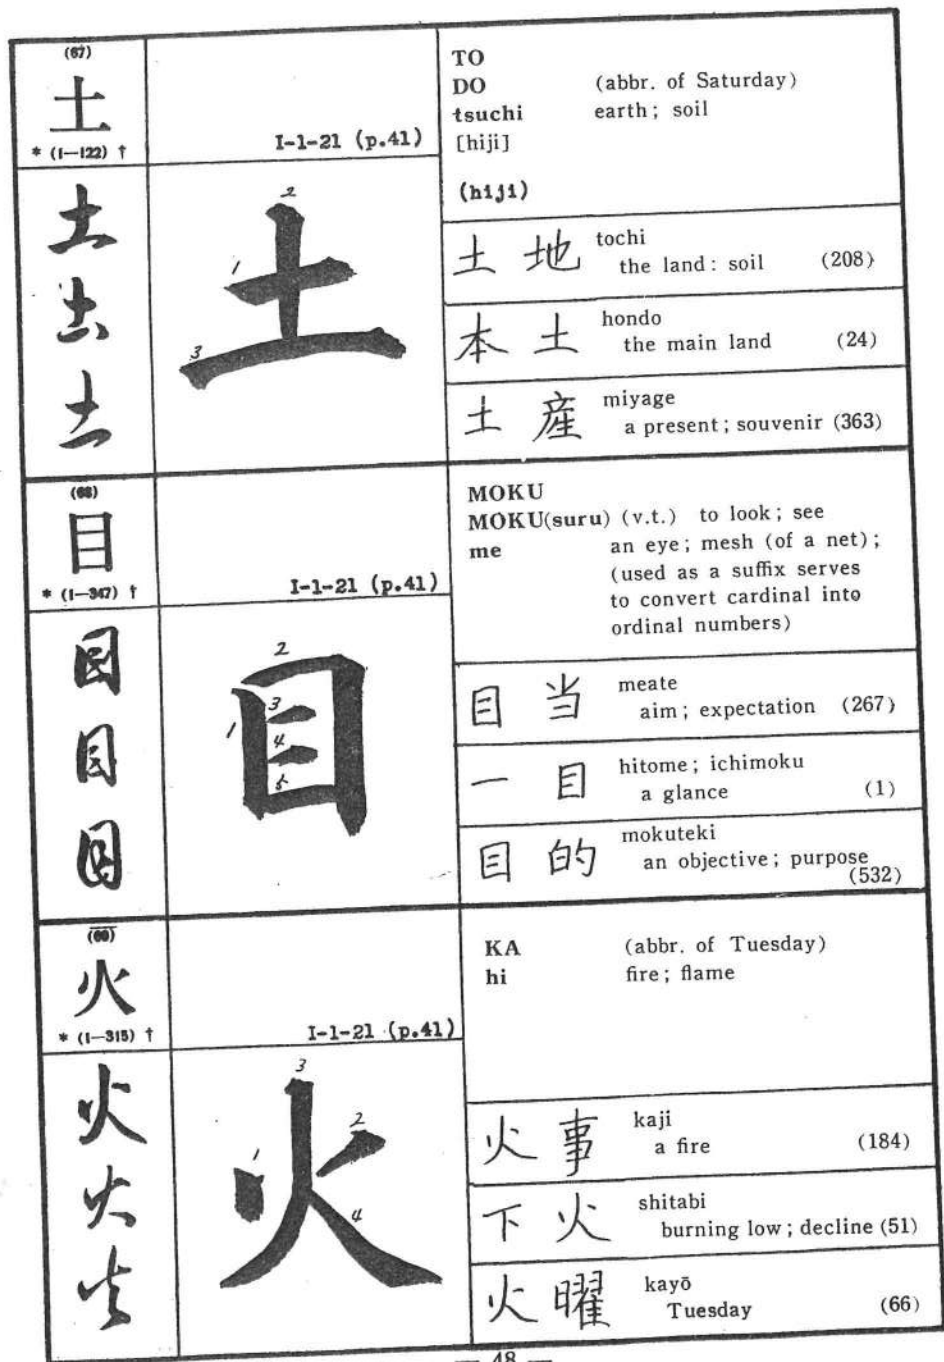 (67)
土
* (1—122) †
I-1-21 (p.41)
土
土
土
1
2
3
土
TO
DO (abbr. of Saturday)
tsuchi earth; soil
[hiji]
(hiji)
土地 tochi
the land: soil (208)
本土 hondo
the main land (24)
土産 miyage
a present; souvenir (363)
(68)
目
* (1—347) †
I-1-21 (p.41)
目
目
目
1
2
3
4
5
目
MOKU
MOKU(suru) (v.t.) to look; see
me an eye; mesh (of a net);
(used as a suffix serves
to convert cardinal into
ordinal numbers)
目当 meate
aim; expectation (267)
一目 hitome; ichimoku
a glance (1)
目的 mokuteki
an objective; purpose
(532)
(69)
火
* (1—315) †
I-1-21 (p.41)
火
火
火
1
2
3
4
火
KA (abbr. of Tuesday)
hi fire; flame
火事 kaji
a fire (184)
下火 shitabi
burning low; decline (51)
火曜 kayō
Tuesday (66)
— 48 —